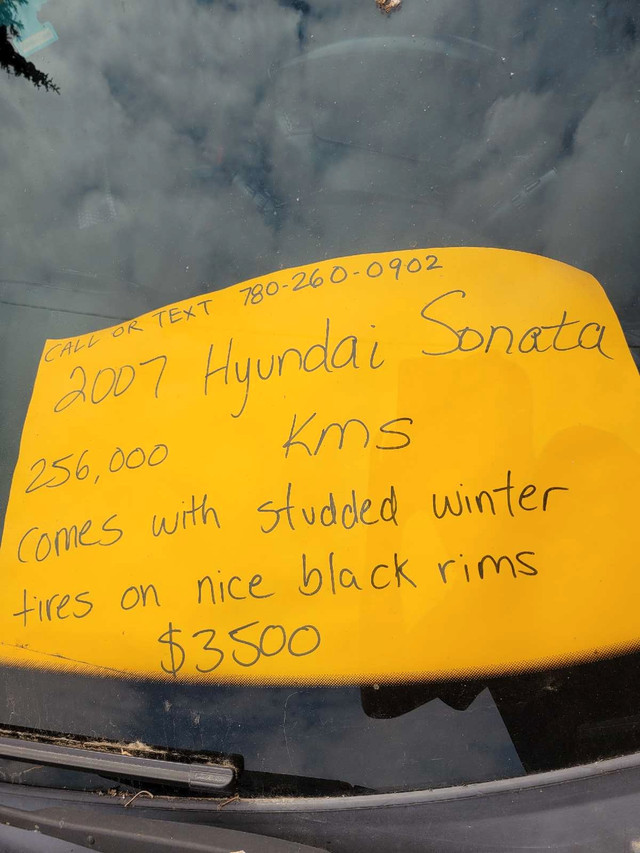 CALL OR TEXT 780-260-0902
2007 Hyundai Sonata
256,000 Kms
Comes with studded winter
tires on nice black rims
$3500